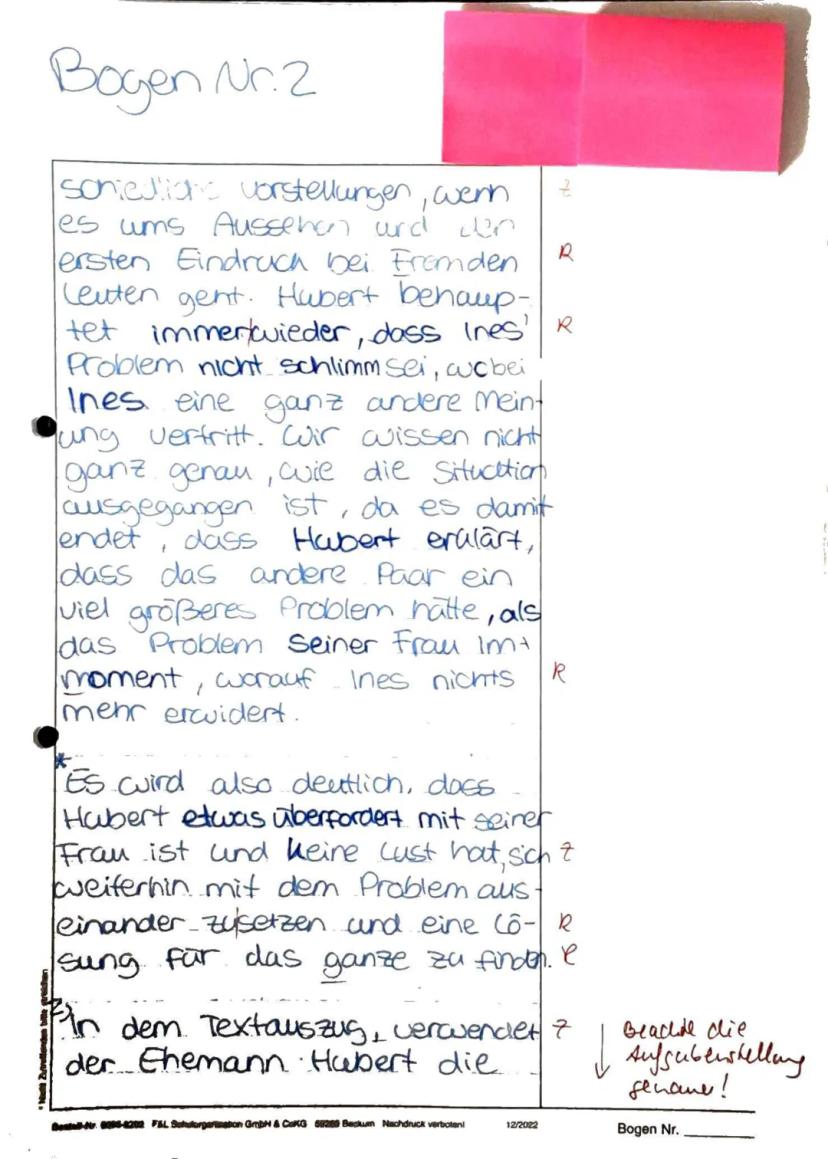 Bogen Nr. 2
schiedliche Vorstellungen, wenn Z
es ums Aussehen und den
ersten Eindruck bei Fremden R
Leuten geht. Hubert behaup-
tet immerwieder, dass Ines' R
Problem nicht schlimm sei, wobei
Ines eine ganz andere Mein-
ung vertritt. Wir wissen nicht
ganz genau, wie die Situation
ausgegangen ist, da es damit
endet, dass Hubert erklärt,
dass das andere Paar ein
viel größeres Problem hätte, als
das Problem seiner Frau im
moment, worauf Ines nichts R
mehr erwidert.
*
Es wird also deutlich, dass
Hubert etwas überfordert mit seiner
Frau ist und keine Lust hat, sich Z
weiterhin mit dem Problem aus-
einander zusetzen und eine Lö- R
sung für das ganze zu finden. R
2) In dem Textauszug, verwendet Z
der Ehemann Hubert die
Beachte die
Aufgabenstellung
genauer!
* Nicht Zutreffendes bitte streichen
Bestell-Nr. F&L Schulorganisation GmbH & CoKG 59269 Beckum Nachdruck verboten! 12/2022
Bogen Nr.